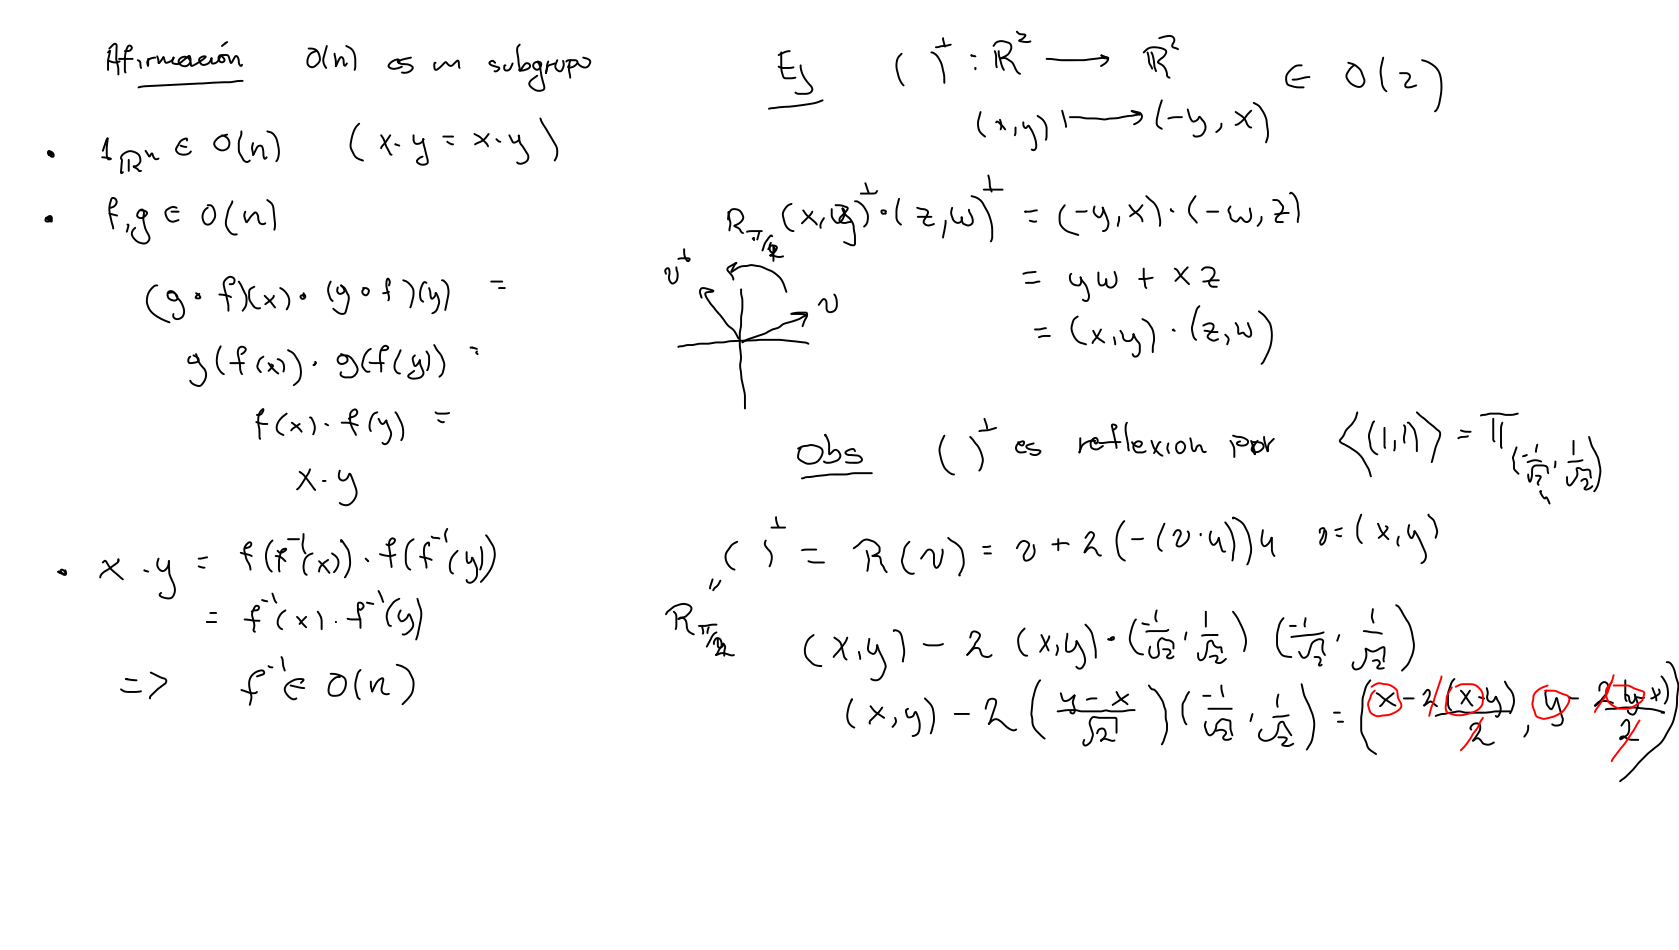 Afirmación O(n) es un subgrupo
• 1_{ℝⁿ} ∈ O(n) (x·y = x·y)
• f,g ∈ O(n)
(g∘f)(x)·(g∘f)(y) =
g(f(x))·g(f(y)) =
f(x)·f(y) =
x·y
• x·y = f(f⁻¹(x))·f(f⁻¹(y))
= f⁻¹(x)·f⁻¹(y)
=> f⁻¹ ∈ O(n)
Ej ( )^⊥ : ℝ² ⟶ ℝ² ∈ O(2)
(x,y) ⟼ (-y,x)
R_{π/2} (x,y)^⊥·(z,w)^⊥ = (-y,x)·(-w,z)
= yw + xz
= (x,y)·(z,w)
v^⊥ v
Obs ( )^⊥ es reflexion por ⟨(1,1)⟩ = π_{(-1/√2, 1/√2)}
u
( )^⊥ = R(v) = v + 2(-(v·u))u v=(x,y)
"
R_{π/2}
(x,y) - 2 (x,y)·(-1/√2, 1/√2) (-1/√2, 1/√2)
(x,y) - 2 ((y-x)/√2)(-1/√2, 1/√2) = (x - 2(x-y)/2, y - 2(y-x)/2)